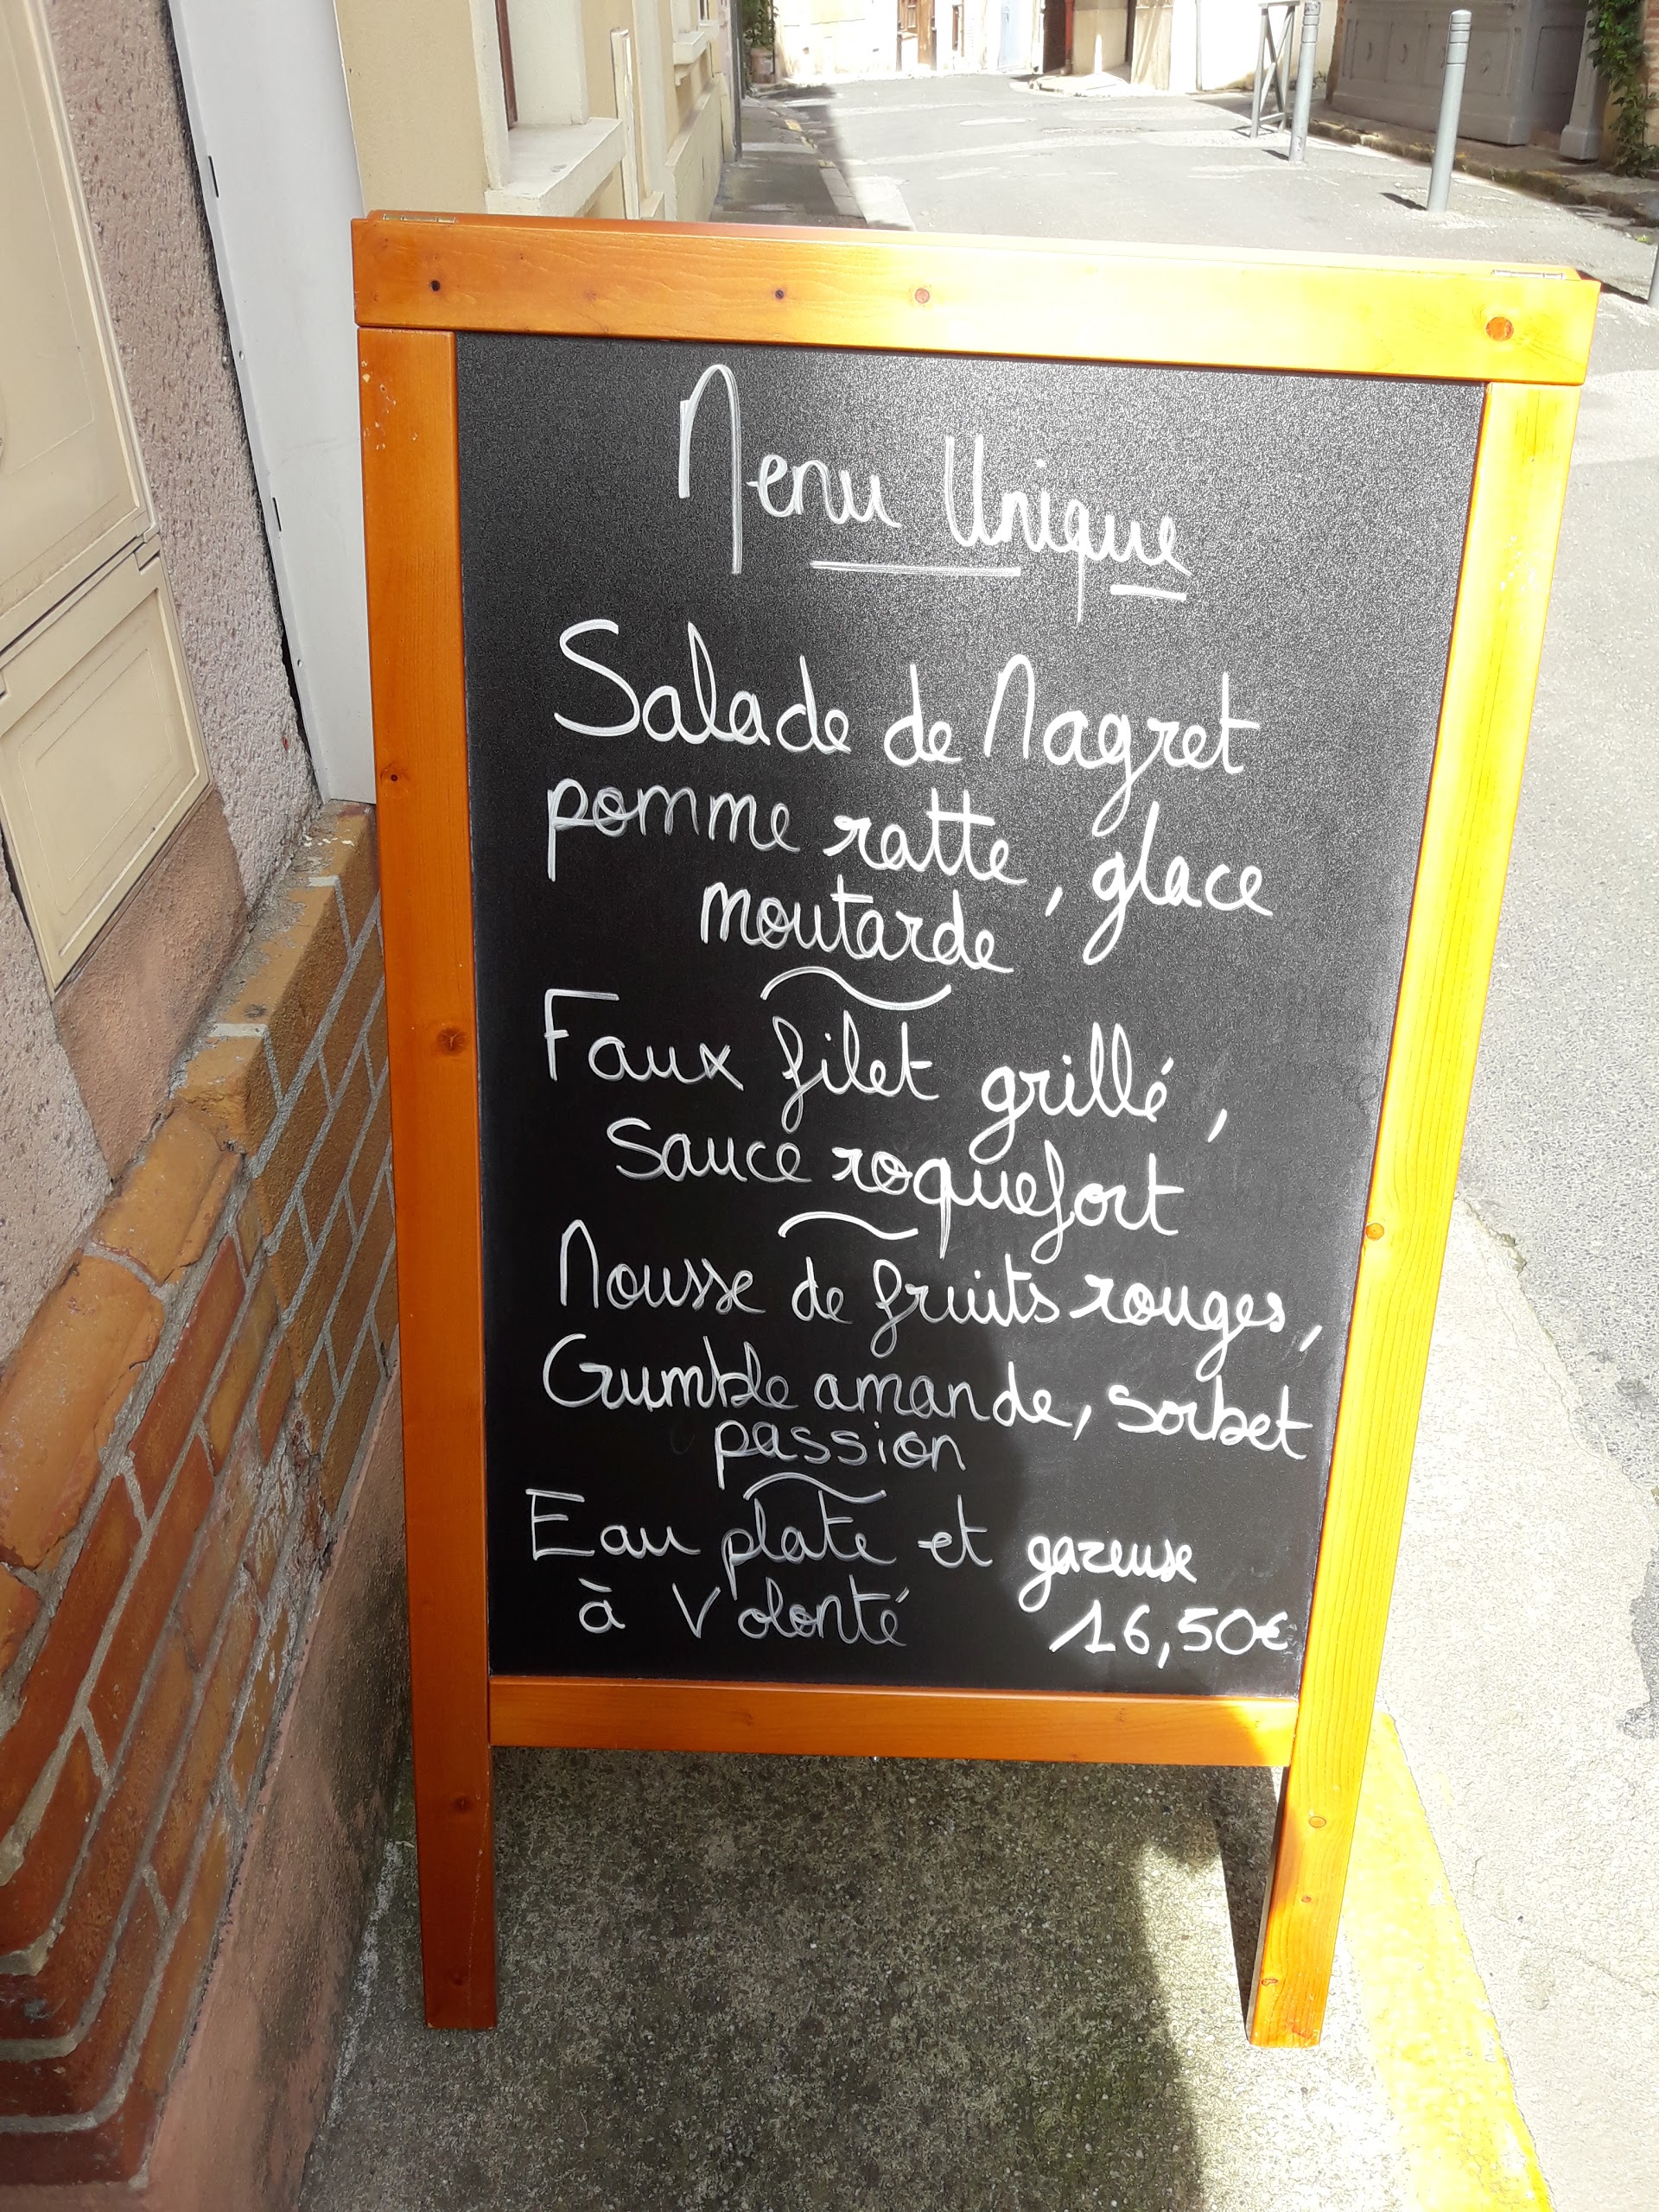 Menu Unique
Salade de Magret
pomme ratte, glace
moutarde
Faux filet grillé,
sauce roquefort
Mousse de fruits rouges,
Crumble amande, sorbet
passion
Eau plate et gazeuse
à Volonté 16,50€